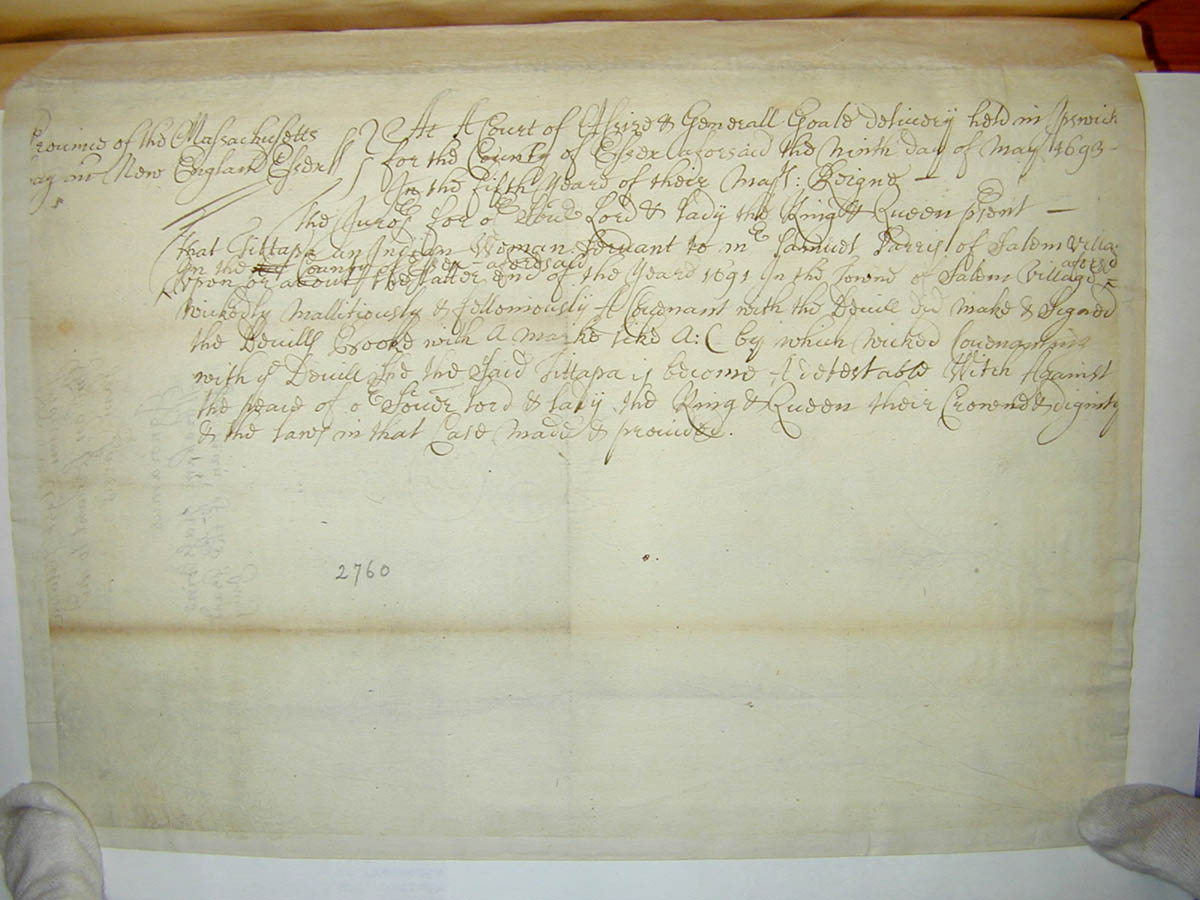 Province of the Massachusetts
Bay in New England Essex ss
At A Court of Assize & Generall Goale delivery held in Ipswich
for the County of Essex aforsaid the ninth day of May 1693
In the fifth Yeare of their Majts: Reigne
The Juro:rs for or Sour: Lord & lady the King & Queen prsent
That Tittapa an Indian Woman Servant to mr Samuel Parris of Salem Villag
In the County of Essex aforesaid
Upon or about the latter end of the Yeare 1691 In the Towne of Salem Village aforesd
wickedly mallitiously & felloniously A Covenant with the Devill did make & Signed
the Devills Booke with A marke like A: C by which wicked Covenanting
with ye Devill She the Said Tittapa is become A detestable Witch Against
the peace of or Sover lord & lady the King & Queen their Crowne & dignity
& the laws in that Case made & provided.
2760